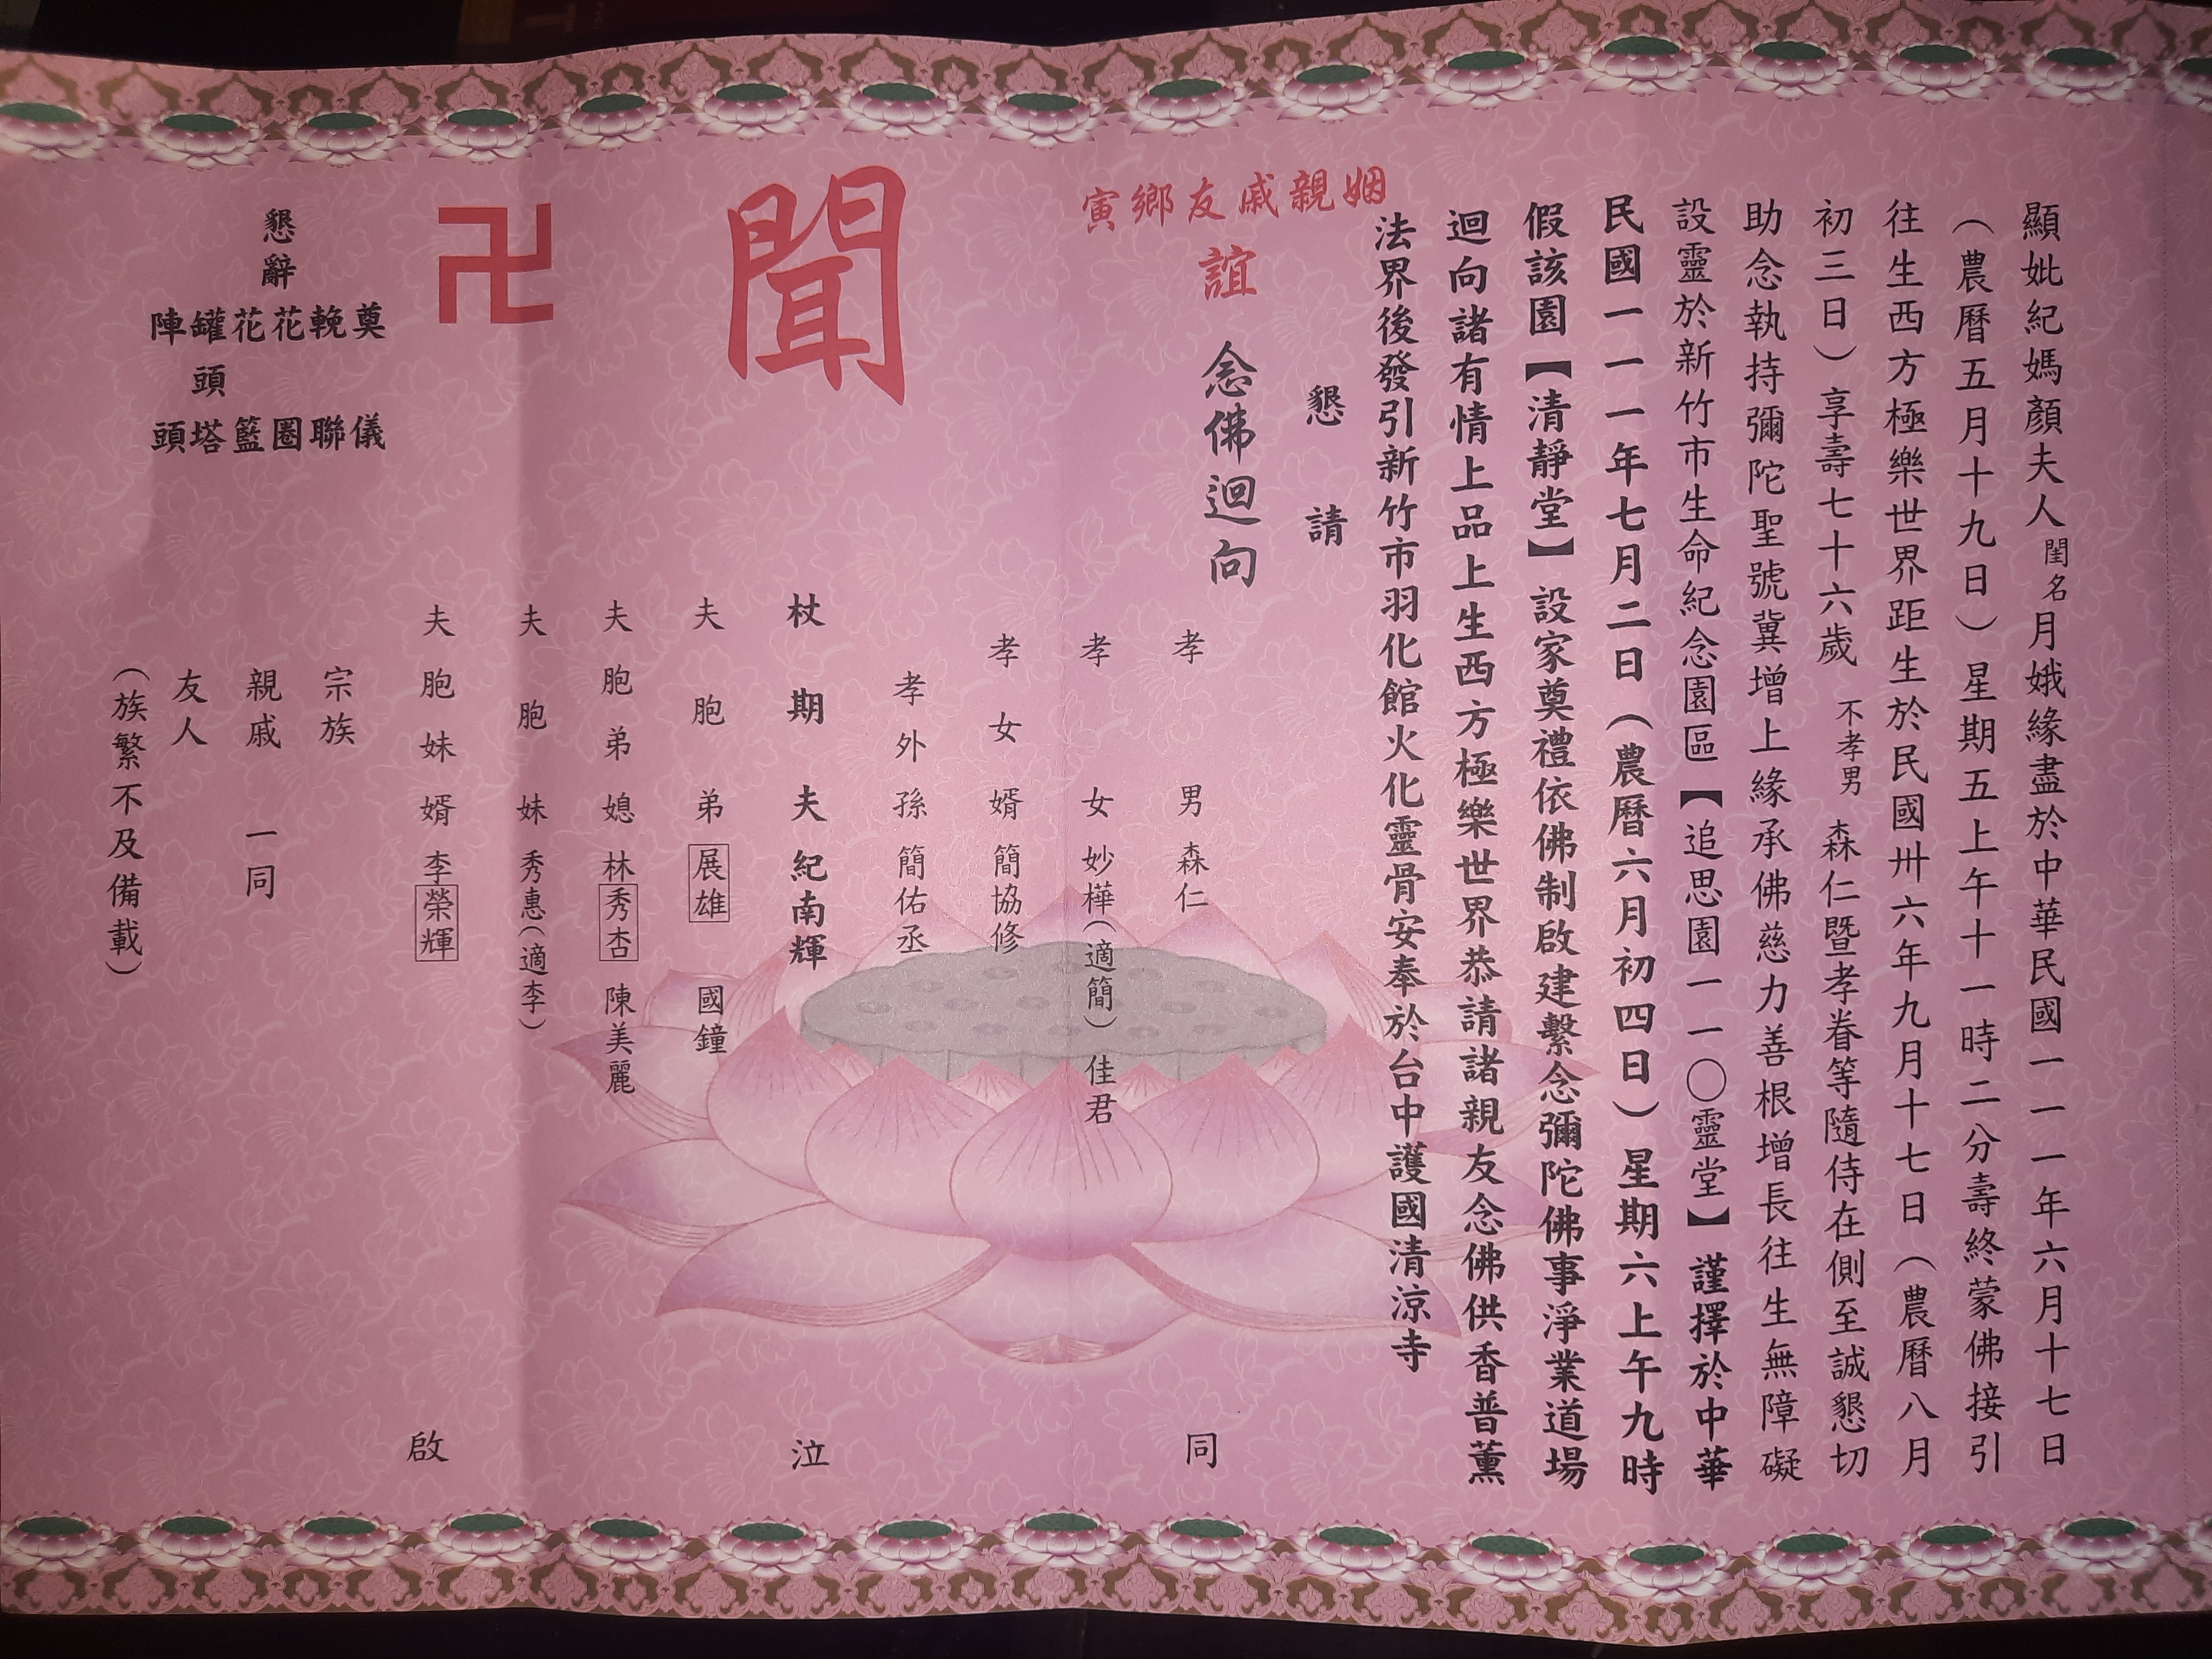 顯妣紀媽顏夫人閨名月娥緣盡於中華民國一一一年六月十七日
（農曆五月十九日）星期五上午十一時二分壽終蒙佛接引
往生西方極樂世界距生於民國卅六年九月十七日（農曆八月
初三日）享壽七十六歲 不孝男 森仁暨孝眷等隨侍在側至誠懇切
助念執持彌陀聖號冀增上緣承佛慈力善根增長往生無障礙
設靈於新竹市生命紀念園區【追思園一一〇靈堂】謹擇於中華
民國一一一年七月二日（農曆六月初四日）星期六上午九時
假該園【清靜堂】設家奠禮依佛制啟建繫念彌陀佛事淨業道場
迴向諸有情上品上生西方極樂世界恭請諸親友念佛供香普薰
法界後發引新竹市羽化館火化靈骨安奉於台中護國清涼寺
懇請
寅鄉友戚親姻
誼
念佛迴向
聞
孝男 森仁
孝女 妙樺（適簡） 佳君
孝女婿 簡協修
孝外孫 簡佑丞
杖期夫 紀南輝
夫胞弟 展雄 國鐘
夫胞弟媳 林秀杏 陳美麗
夫胞妹 秀惠（適李）
夫胞妹婿 李榮輝
宗族
親戚 一同
友人
（族繁不及備載）
同
泣
啟
卍
懇辭
奠儀
輓聯
花圈
花籃
罐頭塔
陣頭